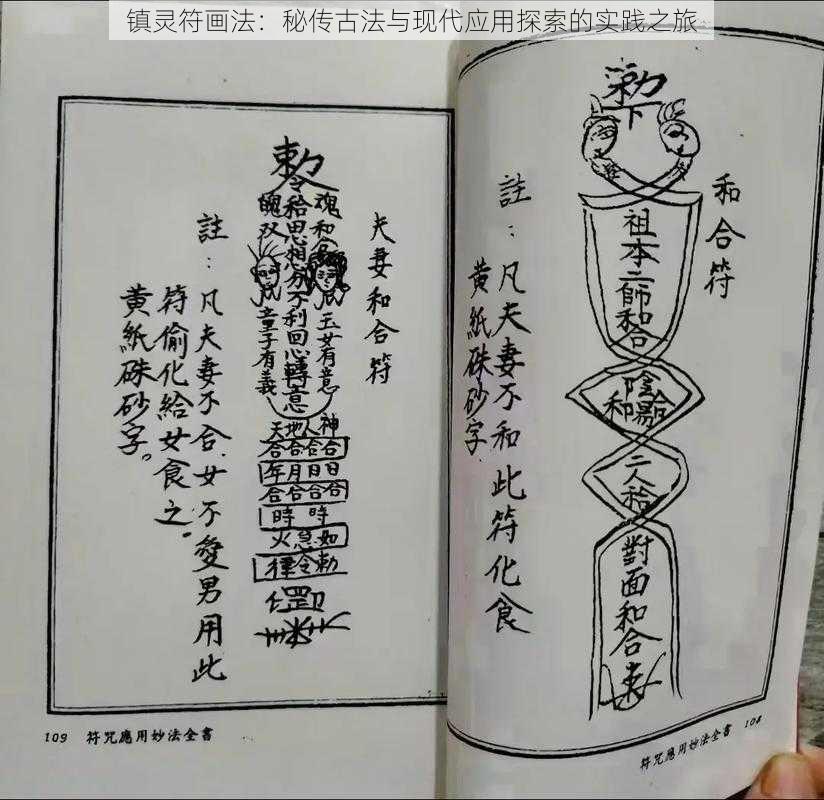 镇灵符画法：秘传古法与现代应用探索的实践之旅
和合符
勅
下
祖本二師和合
陰陽和合
二人和合
對面和合
註：凡夫妻不和此符化食
黄紙硃砂字.
符咒應用妙法全書 108
夫妻和合符
勅
令
魂和合
玉女有意
和合思想郎不利回心轉意
魄双
童子有義
天地人神
合合合合
年月日日
合合合合
時時
火急如
律令勅
註：凡夫妻不合.女不愛男用此
符偷化給女食之。
黄紙硃砂字。
109 符咒應用妙法全書